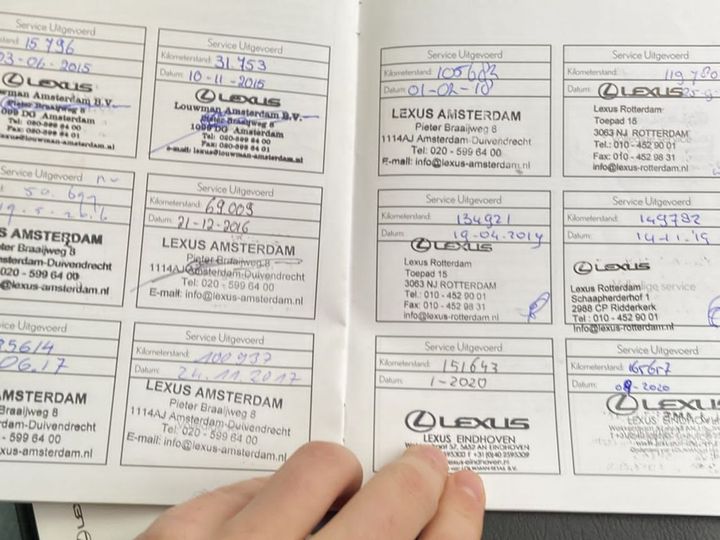 Service Uitgevoerd
15 796
03-06-2015
LEXUS
Louwman Amsterdam B.V.
Pieter Braaijweg 8
1099 DG Amsterdam
Tel: 020-599 64 00
Fax: 020-599 64 01
Service Uitgevoerd
Kilometerstand: 31.753
Datum: 10-11-2015
LEXUS
Louwman Amsterdam B.V.
Pieter Braaijweg 8
1099 DG Amsterdam
Tel: 020-599 64 00
Fax: 020-599 64 01
e-mail: lexus@louwman-amsterdam.nl
Service Uitgevoerd
S AMSTERDAM
eter Braaijweg 8
msterdam-Duivendrecht
020 - 599 64 00
@lexus-amsterdam.nl
Service Uitgevoerd
Kilometerstand: 69009
Datum: 21-12-2016
LEXUS AMSTERDAM
Pieter Braaijweg 8
1114AJ Amsterdam-Duivendrecht
Tel: 020 - 599 64 00
E-mail: info@lexus-amsterdam.nl
ice Uitgevoerd
85614
06.17
S AMSTERDAM
ter Braaijweg 8
msterdam-Duivendrecht
020 - 599 64 00
@lexus-amsterdam.nl
Service Uitgevoerd
Kilometerstand: 100937
Datum: 24.11.2017
LEXUS AMSTERDAM
Pieter Braaijweg 8
1114AJ Amsterdam-Duivendrecht
Tel: 020 - 599 64 00
E-mail: info@lexus-amsterdam.nl
Service Uitgevoerd
Kilometerstand: 105683
Datum: 01-02-18
LEXUS AMSTERDAM
Pieter Braaijweg 8
1114AJ Amsterdam-Duivendrecht
Tel: 020 - 599 64 00
E-mail: info@lexus-amsterdam.nl
Service Uitgevoerd
Kilometerstand: 119780
Datum:
LEXUS
Lexus Rotterdam
Toepad 15
3063 NJ ROTTERDAM
Tel.: 010 - 452 90 01
Fax: 010 - 452 98 31
info@lexus-rotterdam.nl
Service Uitgevoerd
Kilometerstand: 134921
Datum: 19-04-2019
LEXUS
Lexus Rotterdam
Toepad 15
3063 NJ ROTTERDAM
Tel.: 010 - 452 90 01
Fax: 010 - 452 98 31
info@lexus-rotterdam.nl
Service Uitgevoerd
Kilometerstand: 149782
Datum: 14-11-'19
LEXUS
Lexus Rotterdam
Schaapherderhof 1
2988 CP Ridderkerk
Tel.: 010 - 452 90 01
info@lexus-rotterdam.nl
Service Uitgevoerd
Kilometerstand: 151643
Datum: 1-2020
LEXUS
LEXUS EINDHOVEN
Service Uitgevoerd
Kilometerstand: 165657
Datum: 09-2020
LEXUS